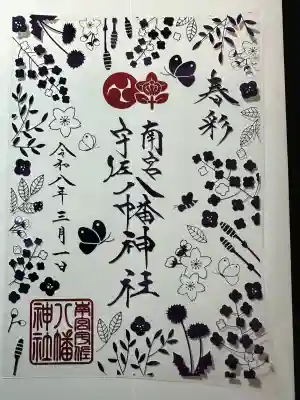 春彩
南宮
宇佐八幡神社
令和八年三月一日
南宮宇佐
八幡
神社